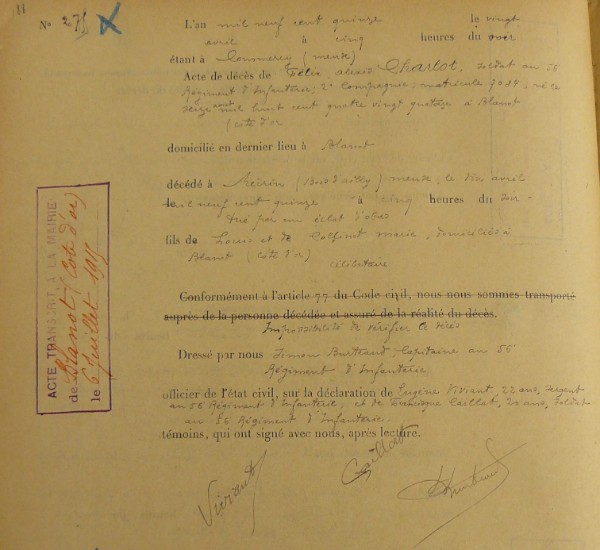 No 275
L'an mil neuf cent quinze le vingt
avril à cinq heures du soir
étant à Commercy (meuse)
Acte de décès de Félix, alexis Charlot, soldat au 55
Régiment d'Infanterie, 2e Compagnie, matricule 7089, né le
seize août mil huit cent quatre vingt quatorze à Blanot
(côte d'or
domicilié en dernier lieu à Blanot
décédé à (Bois d'ailly) meuse, le dix avril
mil neuf cent quinze à cinq heures du
tué par un éclat d'obus
fils de Louis et de marie, domiciliés à
Blanot (côte d'or)
Militaire
Conformément à l'article 77 du Code civil, nous nous sommes transporté
auprès de la personne décédée et assuré de la réalité du décès.
Impossibilité de vérifier le décès
Dressé par nous Simon Bertrand Capitaine au 55
Régiment d'Infanterie
officier de l'état civil, sur la déclaration de Eugène Vivient, 22 ans, sergent
au 55 Régiment d'Infanterie, et de Caillat, 20 ans, soldat
au 55 Régiment d'Infanterie
témoins, qui ont signé avec nous, après lecture.
Caillat
ACTE TRANSCRIT A LA MAIRIE
de Blanot (Côte d'or)
le 6 Juillet 1915